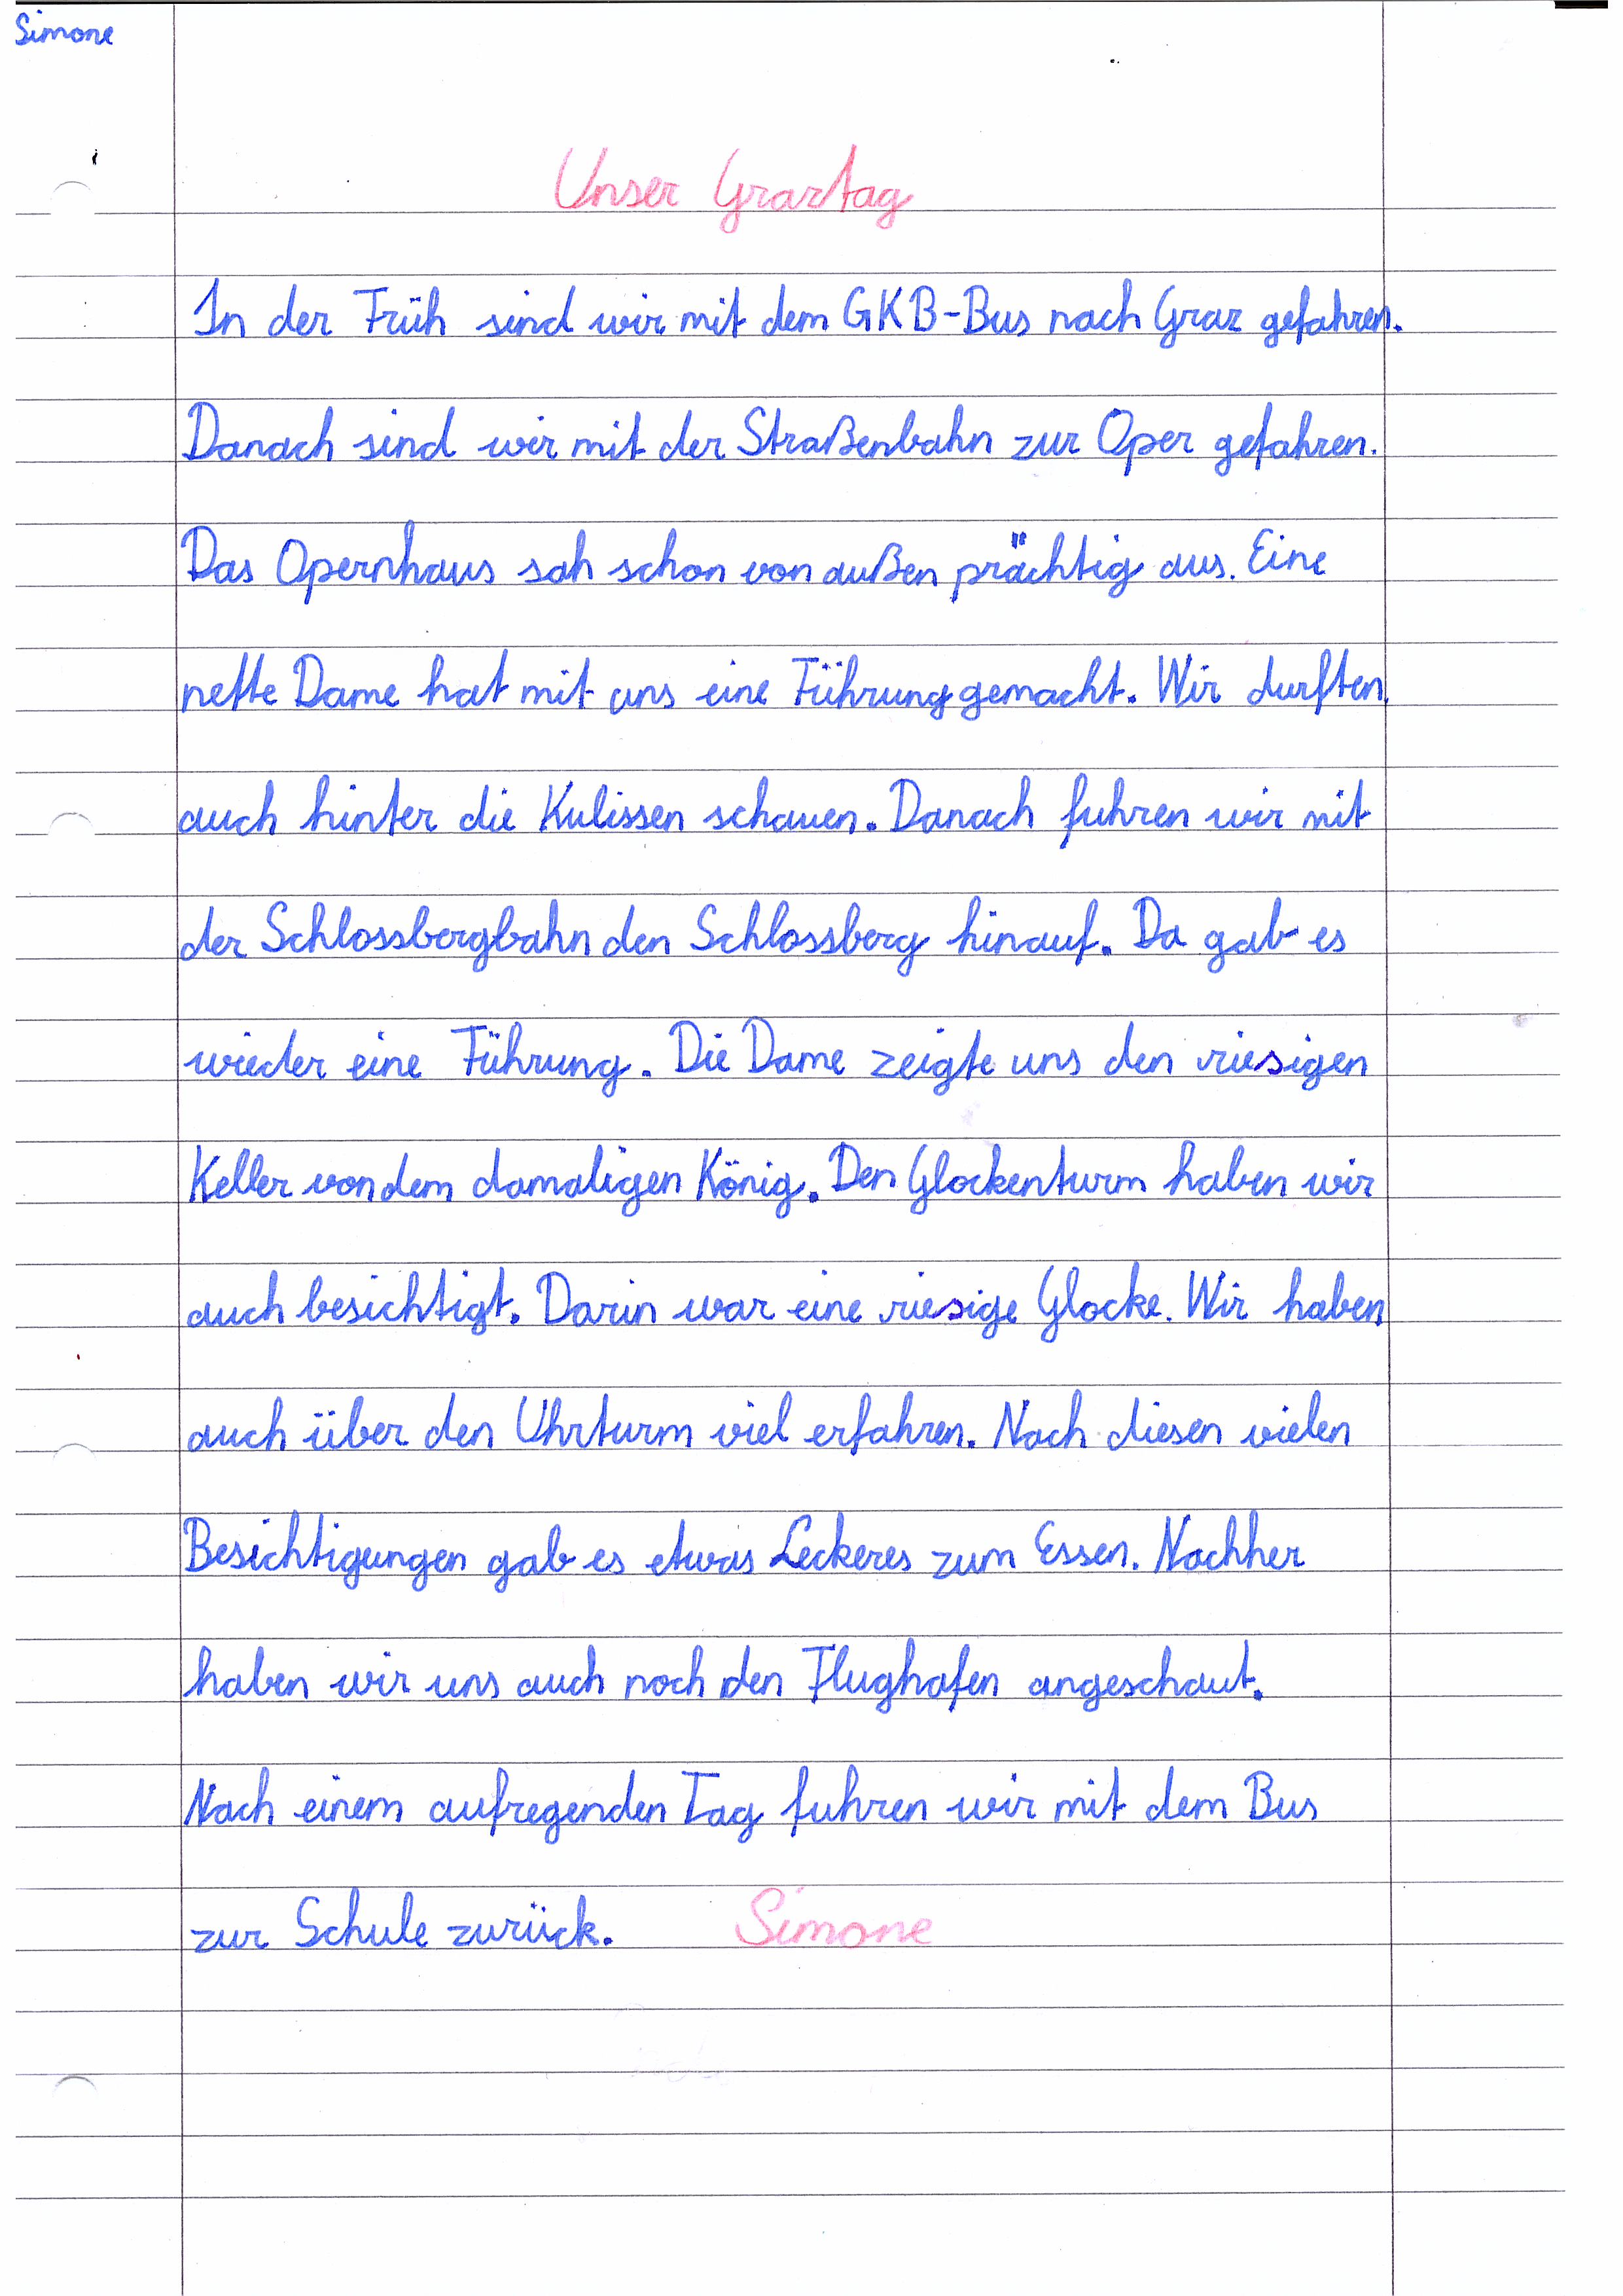 Simone
Unser Graztag
In der Früh sind wir mit dem GKB-Bus nach Graz gefahren.
Danach sind wir mit der Straßenbahn zur Oper gefahren.
Das Opernhaus sah schon von außen prächtig aus. Eine
nette Dame hat mit uns eine Führung gemacht. Wir durften
auch hinter die Kulissen schauen. Danach fuhren wir mit
der Schlossbergbahn den Schlossberg hinauf. Da gab es
wieder eine Führung. Die Dame zeigte uns den riesigen
Keller von dem damaligen König. Den Glockenturm haben wir
auch besichtigt. Darin war eine riesige Glocke. Wir haben
auch über den Uhrturm viel erfahren. Nach diesen vielen
Besichtigungen gab es etwas Leckeres zum Essen. Nachher
haben wir uns auch noch den Flughafen angeschaut.
Nach einem aufregenden Tag fuhren wir mit dem Bus
zur Schule zurück. Simone